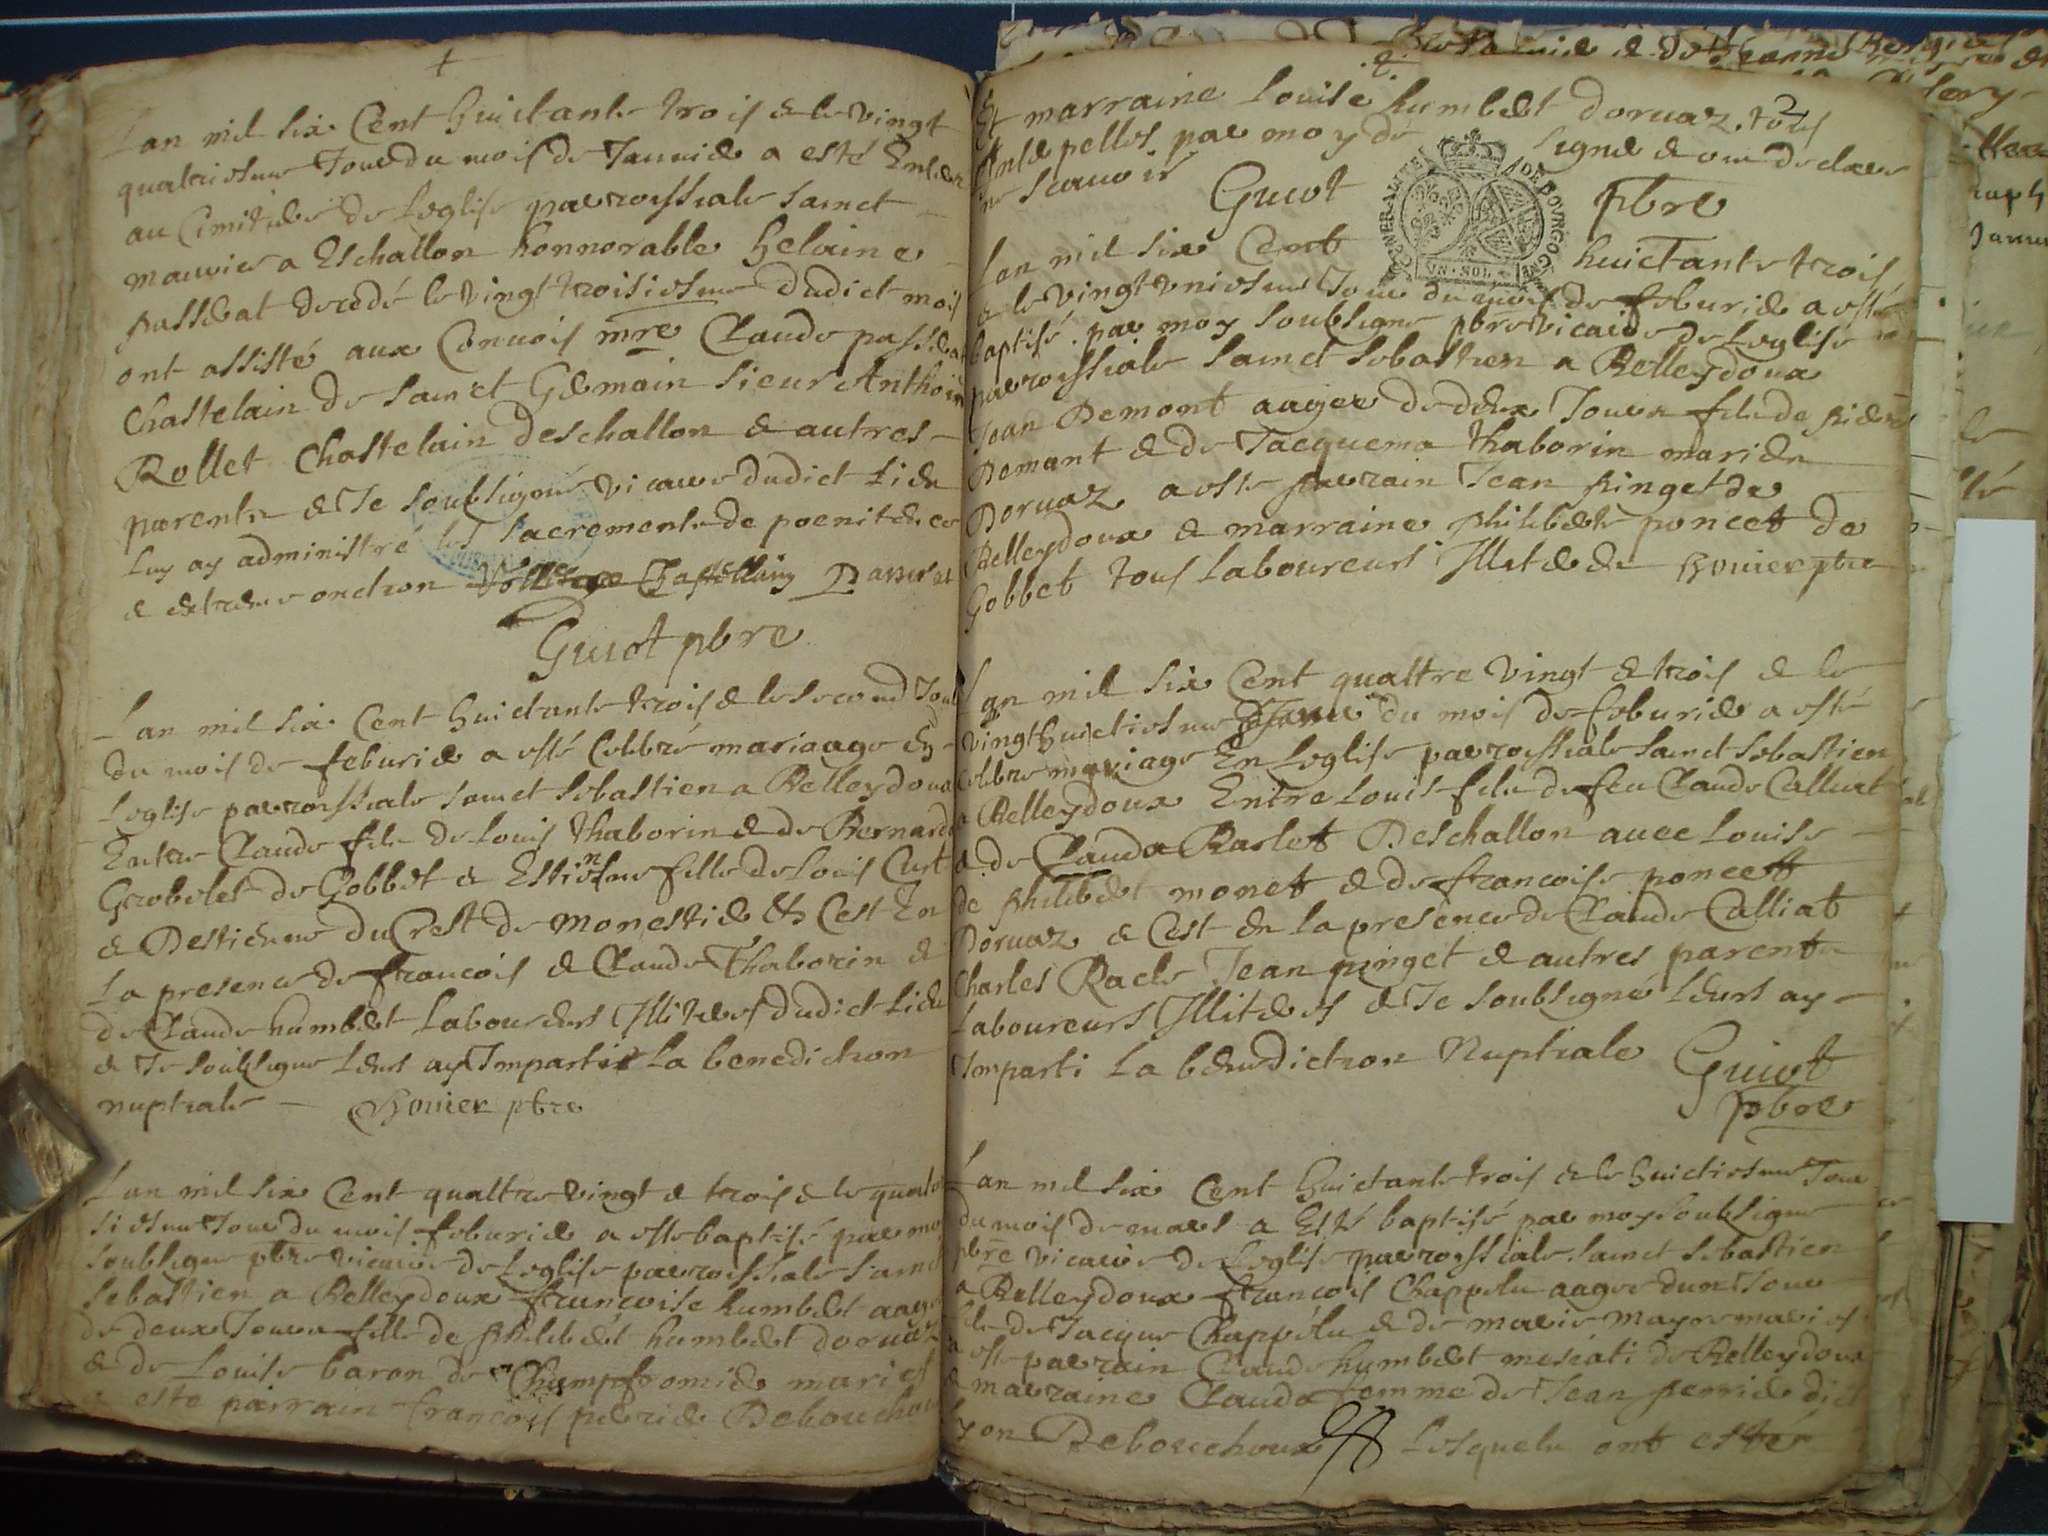 Lan mil six Cent huictante trois & le vingt
quatriesme Jour du mois de Januier a esté Enterré
au Cimitiere de Leglise parroissiale sainct
maurice a Eschallon honnorable helaine
passerat decedé le vingt troisiesme dudict mois
ont assisté aux Conuois mre Claude passerat
Chastelain de sainct Germain sieur Anthoine
Rollet Chastelain deschallon & autres
parents & Je soubsigné vicaire dudict Lieu
Luy ay administré les sacrements de poenitence
& extreme onction Passerat
Guiot pbre
Lan mil six Cent huictante trois & le second Jour
du mois de feburier a esté Celebré mariaage En
Leglise parroissiale sainct sebastien a Belleydoux
Entre Claude fils de Louis thaborin & de Bernarde
Grobelet de Gobbet & Estienne fille de Louis Curt
& Destienne du Crest de monestier & Cest En
La presence de francois & Claude Thaborin &
de Claude humbert Laboureurs Illiteres dudict Lieu
& Je soubsigne Leurs ay Imparti La benediction
nuptiale pbre
Lan mil six Cent quattre vingt & trois & le
siesme Jour du mois feburier a este baptisé par moy
soubsigne pbre vicaire de Leglise parroissiale sainct
sebastien a Belleydoux francoise humbert aagee
de deux Jours fille de philibert humbert doruaz
& de Louise baron de Champfromier maries
a este pairrain francois perrier Debouchoux
Et marraine Louise humbert doruaz tous
Interpelles par moy de signer & ont declaré
ne scauoir Guiot pbre
GENERALITE DE BOVRGOGNE
VN·SOL
Lan mil six Cent huictante trois
& le vingt vniesme Jour du mois de feburier a esté
baptisé par moy soubsigne pbre vicaire de Leglise
parroissiale sainct sebastien a Belleydoux
Jean Demont aagee de deux Jours fils de
Demant & de Jacquema thaborin maries
Doruaz a este parrain Jean pinget de
Belleydoux & marraine philiberte poncet de
Gobbet tous Laboureurs pbre
Lan mil six Cent quattre vingt & trois & le
vingt huictiesme du mois de feburier a esté
celebre mariage En Leglise parroissiale sainct sebastien
a Belleydoux Entre Louis fils de feu Claude Calliat
& de Clauda Barlet Deschallon auec Louise
de philibert monet & de francoise poncett
Doruaz & Cest en La presence de Claude Calliat
Charles Racle Jean pinget & autres parents
Laboureurs Illiteres & Je soubsigné Leurs ay
Imparti La benediction Nuptiale Guiot
pbre
Lan mil six Cent huictante trois & le huictiesme Jour
du mois de mars a Esté baptisé par moy soubsigne
pbre vicaire de Leglise parroissiale sainct sebastien
a Belleydoux francois Chappelu aagee dun Jour
fils de Jacque Chappelu & de marie maries
a este parrain Claude humbert de Belleydoux
& marraine Clauda femme de Jean perrier dict
Lyon Debouchoux Lesquels ont estés